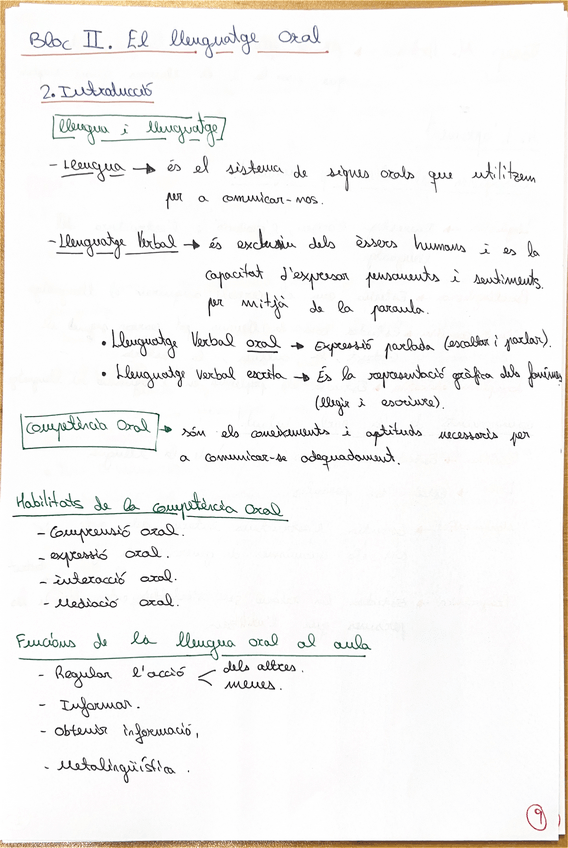 Bloc II. El llenguatge oral
2. Introducció
Llengua i llenguatge
- Llengua → és el sistema de signes orals que utilitzem
per a comunicar-nos.
- Llenguatge Verbal → és exclusiu dels èssers humans i es la
capacitat d'expresar pensaments i sentiments,
per mitjà de la paraula.
• Llenguatge Verbal oral → Expressió parlada (escoltar i parlar).
• Llenguatge verbal escrita → És la representació gràfica dels fonèmes
(llegir i escriure).
Competència Oral → són els coneixaments i aptituds necessaris per
a comunicar-se adequadament.
Habilitats de la competència oral
- Comprensió oral.
- expressió oral.
- interacció oral.
- Mediació oral.
Funcións de la llengua oral al aula
- Regular l'acció < dels altres.
meues.
- Informar.
- Obtenir informació,
- Metalingüística.
9